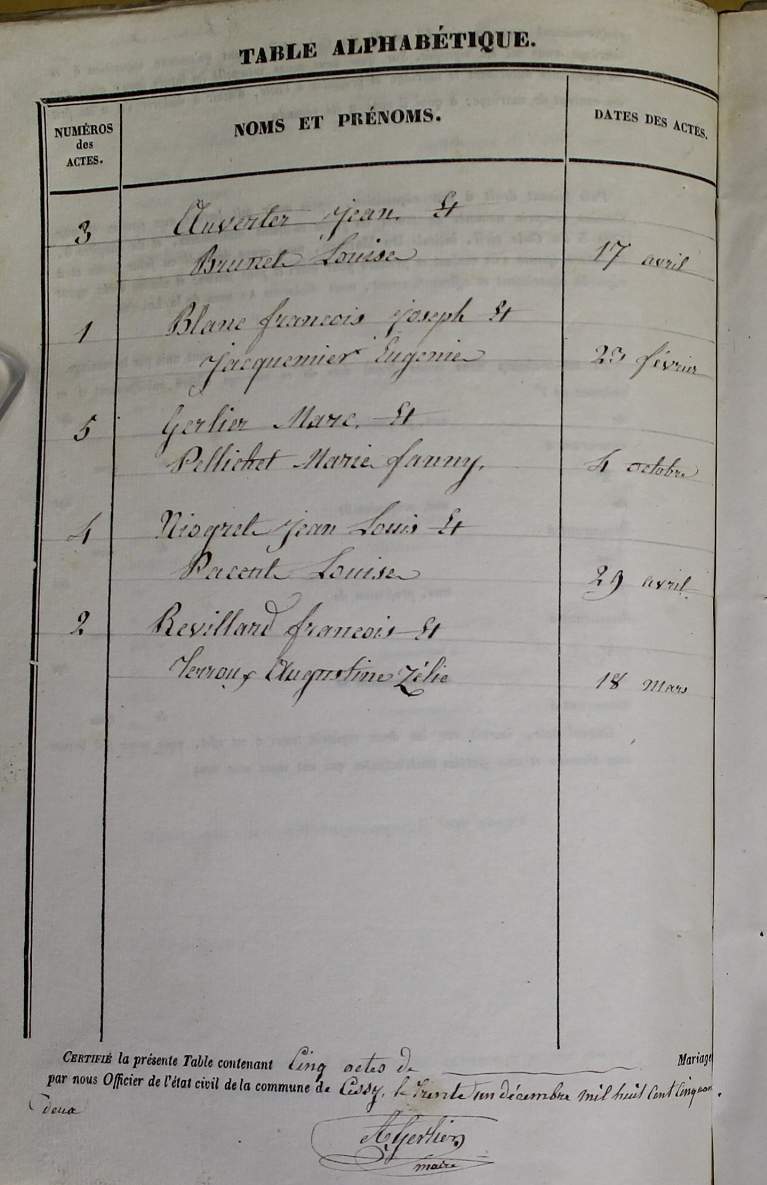 TABLE ALPHABÉTIQUE.
NUMÉROS des ACTES.
NOMS ET PRÉNOMS.
DATES DES ACTES.
3 Auverter Jean. Et
Brunet Louise 17 avril
1 Blanc francois joseph Et
Jacquemier Eugenie 23 février
5 Gerlier Marc. Et
Pellichet Marie fanny. 4 octobre
4 Niogret Jean Louis Et
Pacent Louise 29 avril
2 Revillard francois Et
Verroux Augustine Zélie 18 mars
CERTIFIÉ la présente Table contenant Cinq actes de Mariage
par nous Officier de l'état civil de la commune de Cessy, le trente un décembre mil huit Cent Cinquan
deux
AGerlier
maire